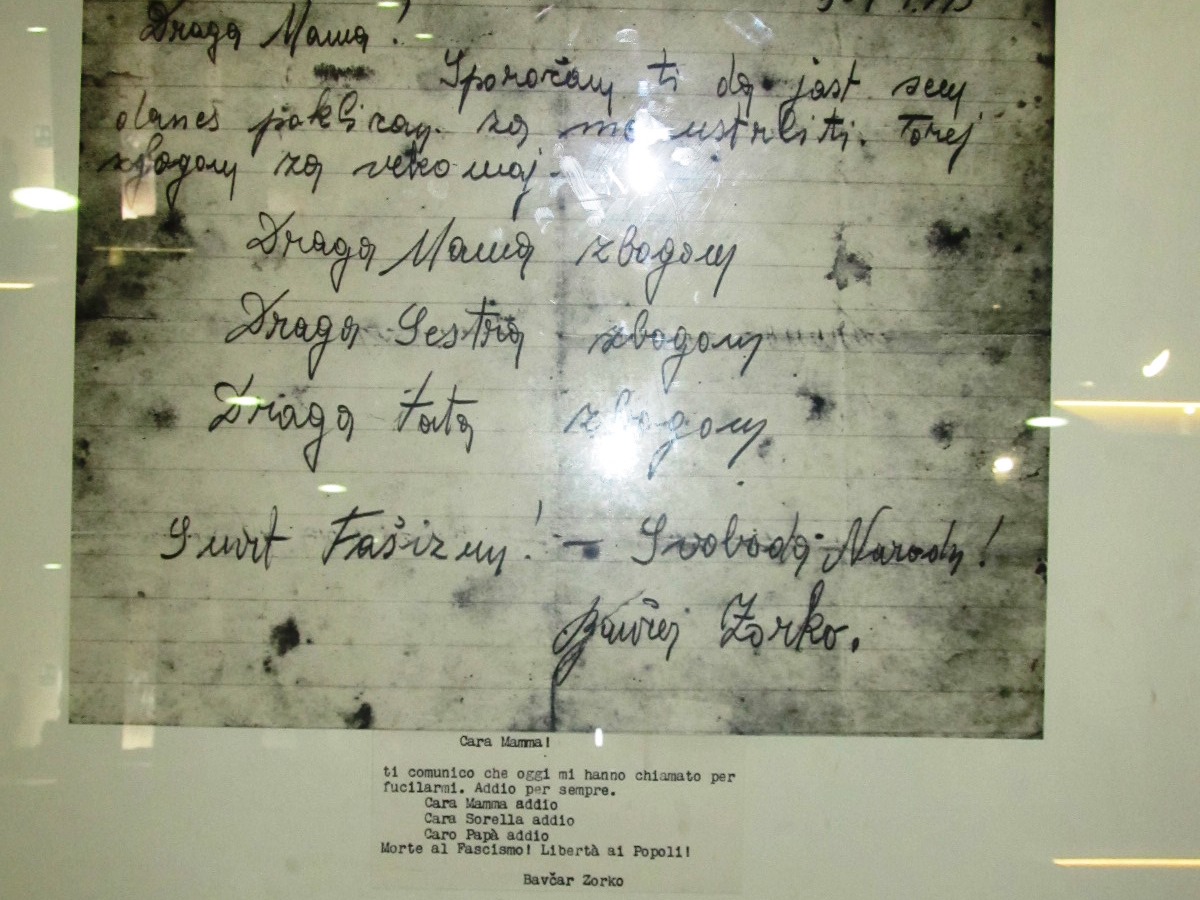 Draga Mama!
Sporočam ti da jast sem
danes poklican. za me ustrliti. Torej
zbogom za vekomaj.
Draga Mama zbogom
Draga Sestra zbogom
Draga tata zbogom
Smrt Fašizmu! - Svoboda Narodu!
Bavčer Zorko.
Cara Mamma!
ti comunico che oggi mi hanno chiamato per
fucilarmi. Addio per sempre.
Cara Mamma addio
Cara Sorella addio
Caro Papà addio
Morte al Fascismo! Libertà ai Popoli!
Bavčar Zorko